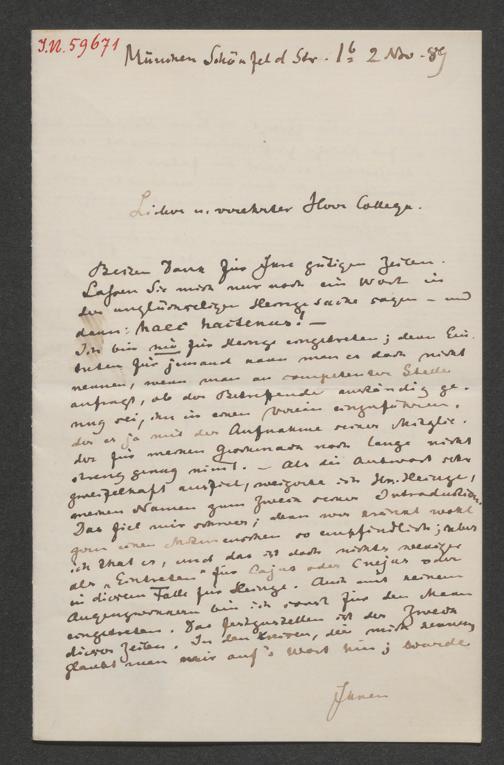 I.N. 59671
München Schönfeld Str. 1b 2 Nov. 89
Lieber u. verehrter Herr College.
Besten Dank für Ihre gütigen Zeilen.
Lassen Sie mich nur noch ein Wort in
der unglückseligen Heingesache sagen – und
dann: haec hactenus! –
Ich bin nie für Heinge eingetreten; denn Ein-
treten für jemand kann man es doch nicht
nennen, wenn man an competenter Stelle
anfragt, ob der Betreffende anständig ge-
nug sei, ihn in einen Verein einzuführen,
der es ja mit der Aufnahme seiner Mitglie-
der für meinen Geschmack noch lange nicht
streng genug nimt. – Als die Antwort sehr
zweifelhaft ausfiel, weigerte ich Hn. Heinge,
meinen Namen zum Zweck seiner Introduktion.
Das fiel mir schwer; denn wer kränkt wohl
gern einen Menschen so empfindlich; aber
ich that es, und das ist doch nichts weniger
als "Eintreten" für Cajus oder Cnejus oder
in diesem Falle für Heinge. Auch mit keinem
Augenzwinkern bin ich sonst für den Mann
eingetreten. Das festzustellen ist der Zweck
dieser Zeilen. In den Kreisen, die mich kennen,
glaubt man mir auf's Wort hin; wurde
Ihnen